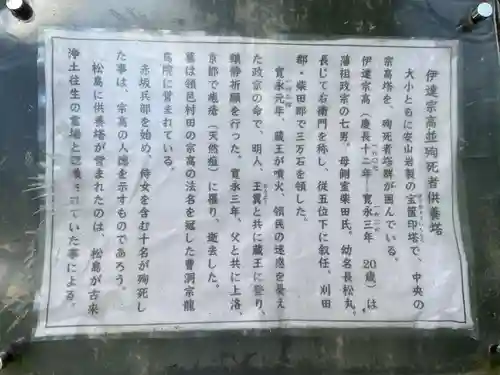 伊達宗高並殉死者供養塔
大小ともに安山岩製の宝篋印塔で、中央の
宗高塔を、殉死者塔群が囲んでいる。
伊達宗高（慶長十二年―寛永三年 20歳）は、
藩祖政宗の七男。母側室柴田氏。幼名長松丸。
長じて右衛門を称し、従五位下に叙任、刈田
郡・柴田郡で三万石を領した。
寛永元年、蔵王が噴火、領民の迷惑を憂え
た政宗の命で、明人、王翼と共に蔵王に登り、
鎮静祈願を行った。寛永三年、父と共に上洛、
京都で疱瘡（天然痘）に罹り、逝去した。
墓は領邑村田の宗高の法名を冠した曹洞宗龍
島院に営まれている。
赤坂兵部を始め、侍女を含む十名が殉死し
た事は、宗高の人徳を示すものであろう。
松島に供養塔が営まれたのは、松島が古来
浄土往生の霊場と されていた事による。